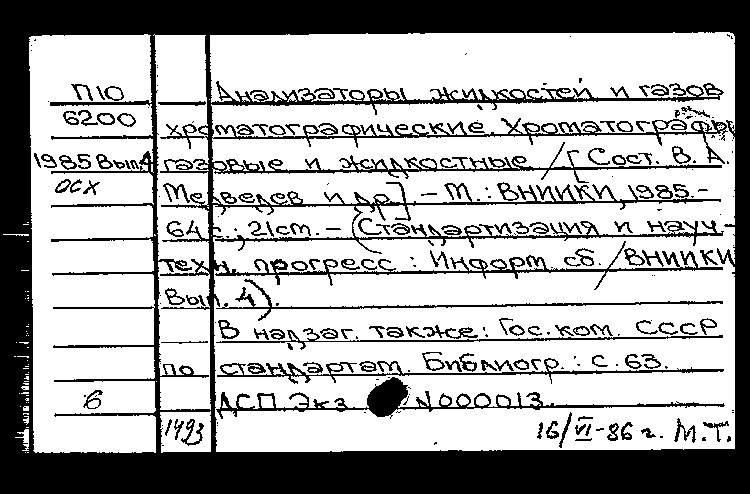 П10 Анализаторы жидкостей и газов
6200 хроматографические. Хроматографы
1985 Вып.4 газовые и жидкостные / [Сост. В. А.
ОСХ Медведев и др.]. – М.: ВНИИКИ, 1985. –
64 с.; 21 см. – (Стандартизация и науч.-
техн. прогресс: Информ. сб. / ВНИИКИ
Вып. 4).
В надзаг. также: Гос. ком. СССР
по стандартам. Библиогр.: с. 63.
в ДСП. Экз N000013.
1493 16/VI-86 г. М.Т.